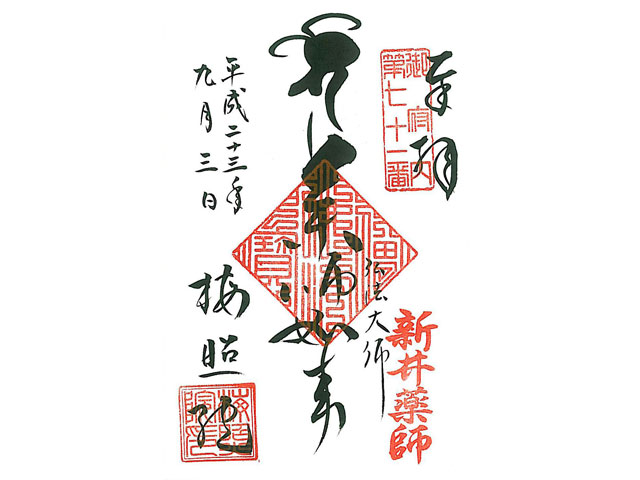 奉拝
御府内
第七十一番
新井薬師
弘法大師
薬師如来
平成二十三年
九月三日
梅照院